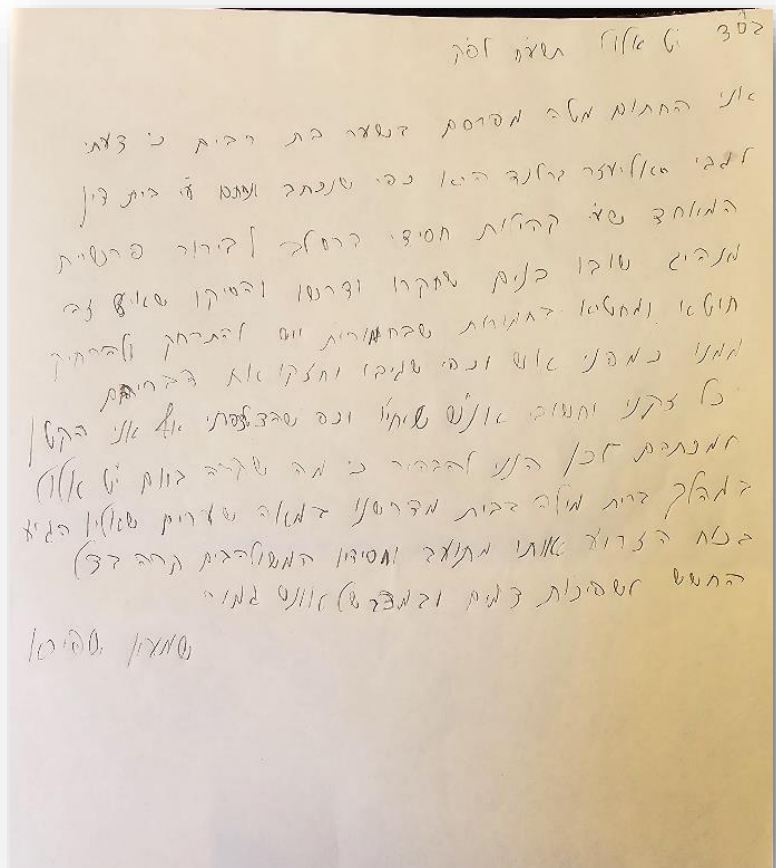 בס"ד י"ט אלול תשע"ח לפ"ק
אני החתום מטה מפרסם בשער בת רבים כי דעתי
לגבי אליעזר ברלנד היא כפי שנכתב ונחתם ע"י בית דין
המאוחד שע"י קהילות חסידי ברסלב לבירור פרשיית
מנהיג שובו בנים שחקרו ודרשו והסיקו שאיש זה
חוטא ומחטיא בחמורות שבחמורות ויש להתרחק ולהרחיק
ממנו כמפני אש וכפי שגיבו וחזקו את הדברים
כל זקני וחשובי אנ"ש שיחיו וכפי שהצטרפתי אף אני הקטן
למכתבם לכן הנני להבהיר כי מה שקרה ביום י"ט אלול
במהלך ברית מילה בבית מדרשנו במאה שערים שאליו הגיע
בכוח הזרוע אותו מתועב וחסידיו המשולהבים קרה בצל
החשש לשפיכות דמים ובמצב של אונס גמור
שמעון שפירא